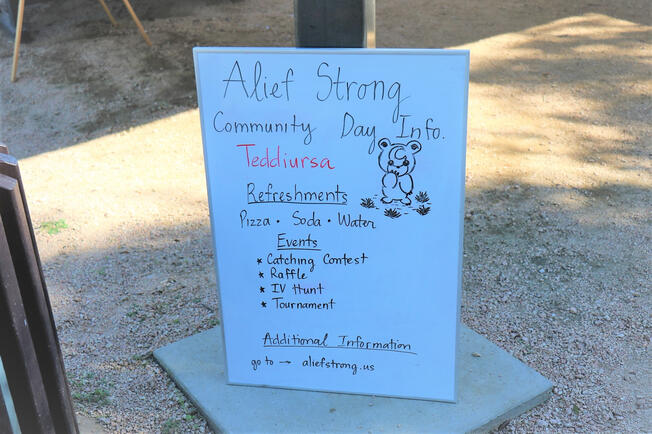 Alief Strong
Community Day Info.
Teddiursa
Refreshments
Pizza • Soda • Water
Events
* Catching Contest
* Raffle
* IV Hunt
* Tournament
Additional Information
go to → aliefstrong.us